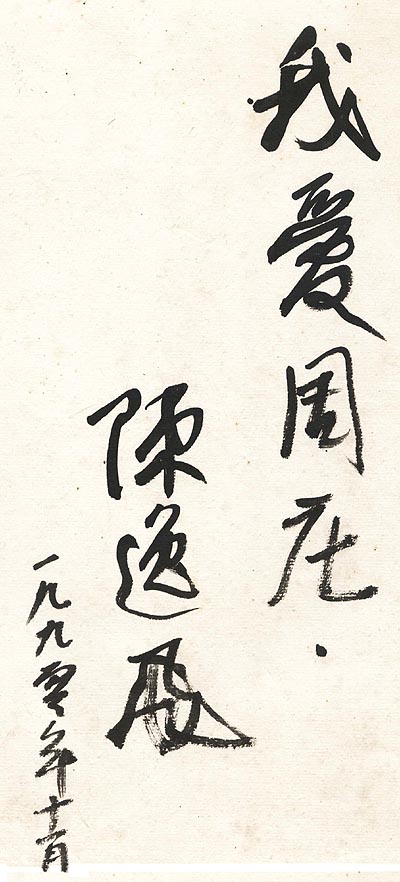 我愛周庄.
陳逸飛
一九九零年十一月